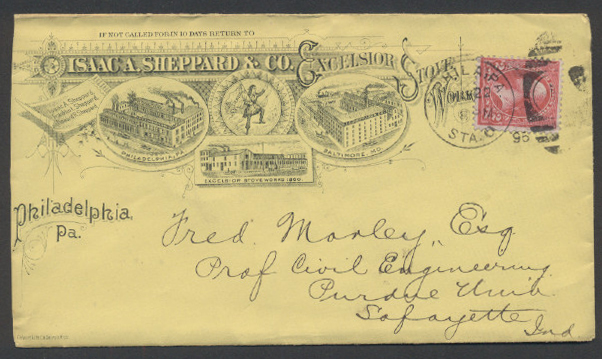 IF NOT CALLED FOR IN 10 DAYS RETURN TO
ISAAC A. SHEPPARD & CO. EXCELSIOR STOVE
Isaac A. Sheppard,
PHILADELPHIA, PA.
BALTIMORE, MD.
EXCELSIOR STOVE WORKS 1860
PHILA PA
MAR 22
STA. O
96
Philadelphia,
Pa.
Fred. Morley, Esq
Prof Civil Engineering
Purdue Univ.
Lafayette
Ind